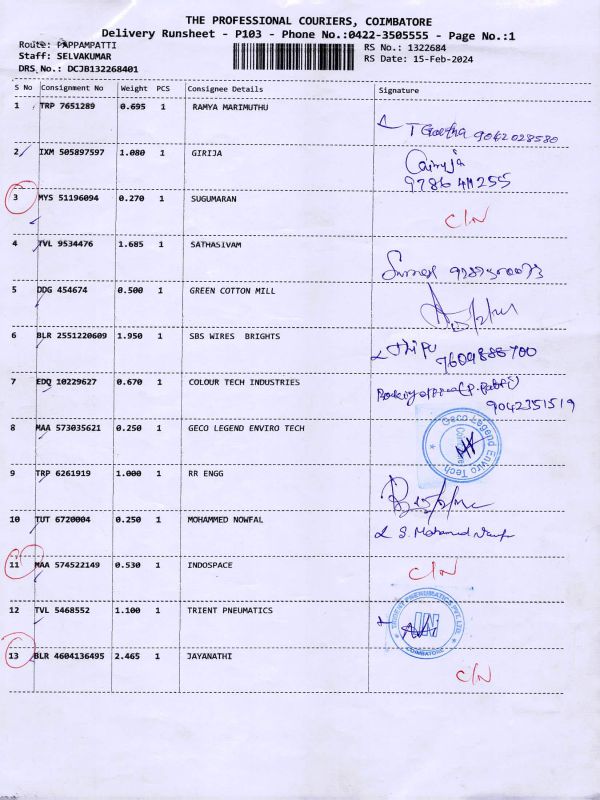 THE PROFESSIONAL COURIERS, COIMBATORE
Delivery Runsheet - P103 - Phone No.:0422-3505555 - Page No.:1
Route: PAPPAMPATTI
RS No.: 1322684
Staff: SELVAKUMAR
RS Date: 15-Feb-2024
DRS No.: DCJB132268401
S No Consignment No Weight PCS Consignee Details Signature
1 TRP 7651289 0.695 1 RAMYA MARIMUTHU
T Geetha 9042028580
2 IXM 505897597 1.080 1 GIRIJA
Girija
3 MYS 51196094 0.270 1 SUGUMARAN
C/N
4 TVL 9534476 1.685 1 SATHASIVAM
5 DDG 454674 0.500 1 GREEN COTTON MILL
6 BLR 2551220609 1.950 1 SBS WIRES BRIGHTS
7609885700
7 EDQ 10229627 0.670 1 COLOUR TECH INDUSTRIES
9042351519
8 MAA 573035621 0.250 1 GECO LEGEND ENVIRO TECH
Geco Legend Enviro Tech
9 TRP 6261919 1.000 1 RR ENGG
10 TUT 6720004 0.250 1 MOHAMMED NOWFAL
S. Mohamed
11 MAA 574522149 0.530 1 INDOSPACE
C/N
12 TVL 5468552 1.100 1 TRIENT PNEUMATICS
TRIDENT PNEUMATICS PVT. LTD.
COIMBATORE
13 BLR 4604136495 2.465 1 JAYANATHI
C/N